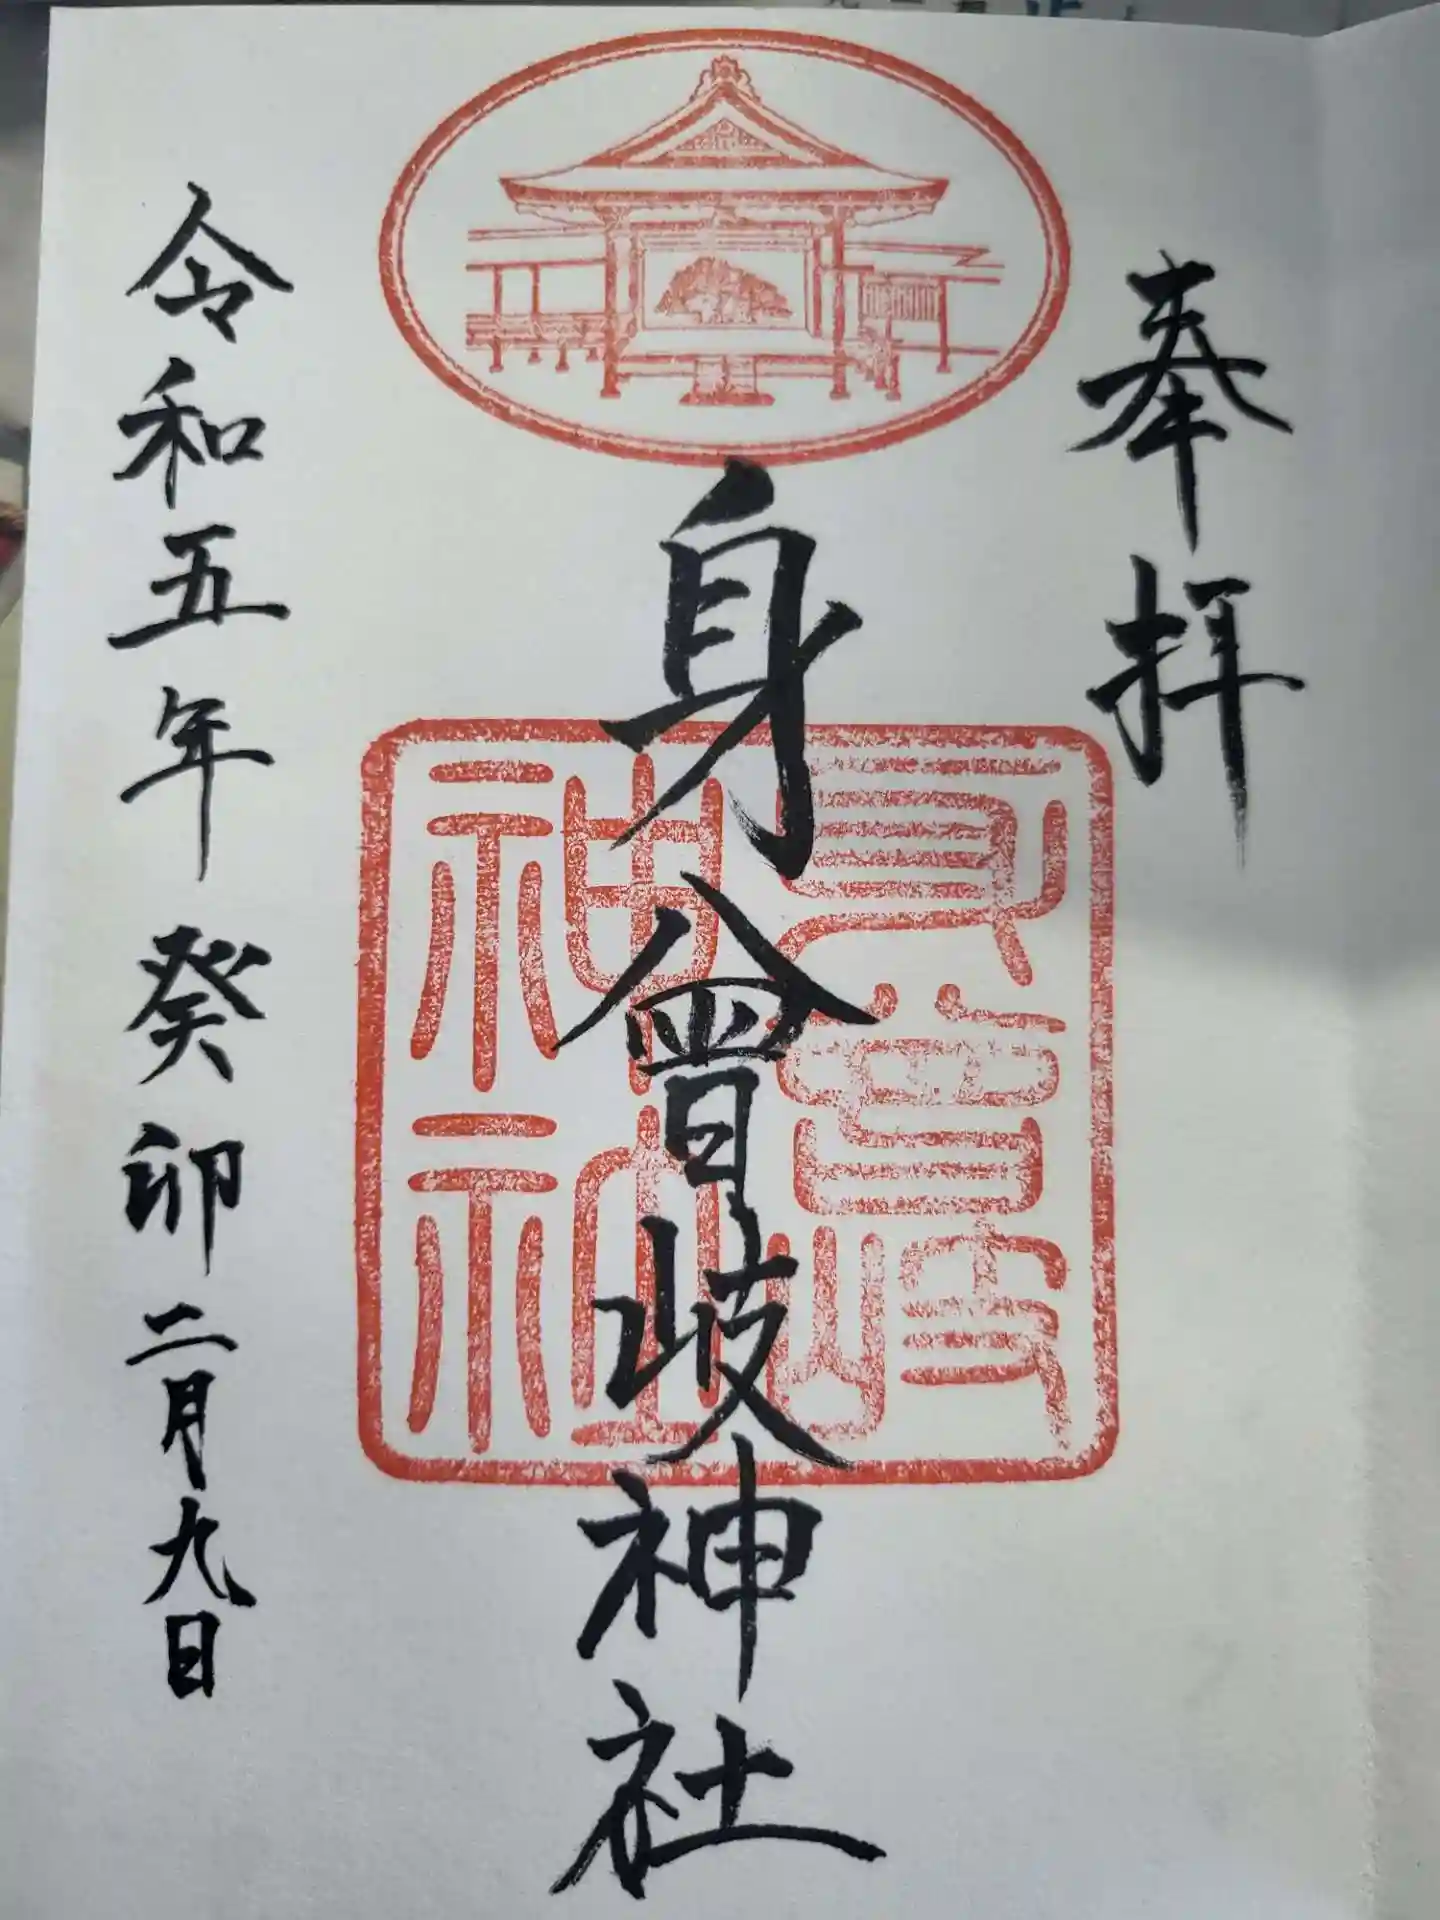 奉拝
身曾岐神社
身曾岐
神社
令和五年癸卯二月九日